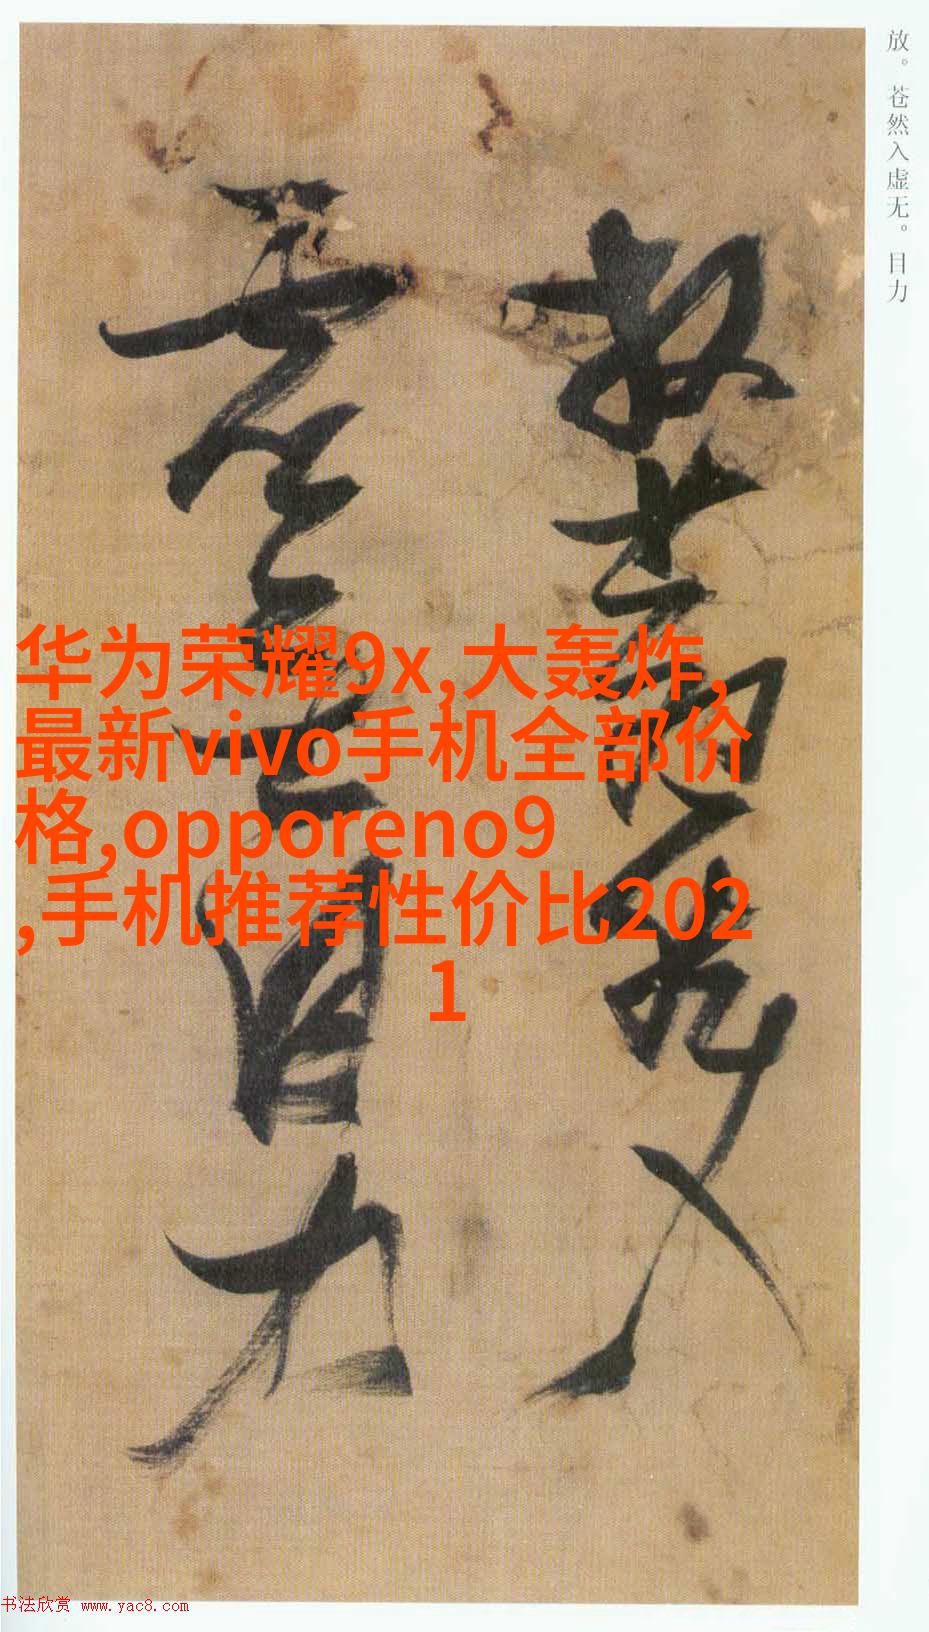 放。苍然入虚无。目力
放苍然入
虚无目力
华为荣耀9x,大轰炸,
最新vivo手机全部价
格,opporeno9
,手机推荐性价比202
1
书法欣赏 www.yac8.com